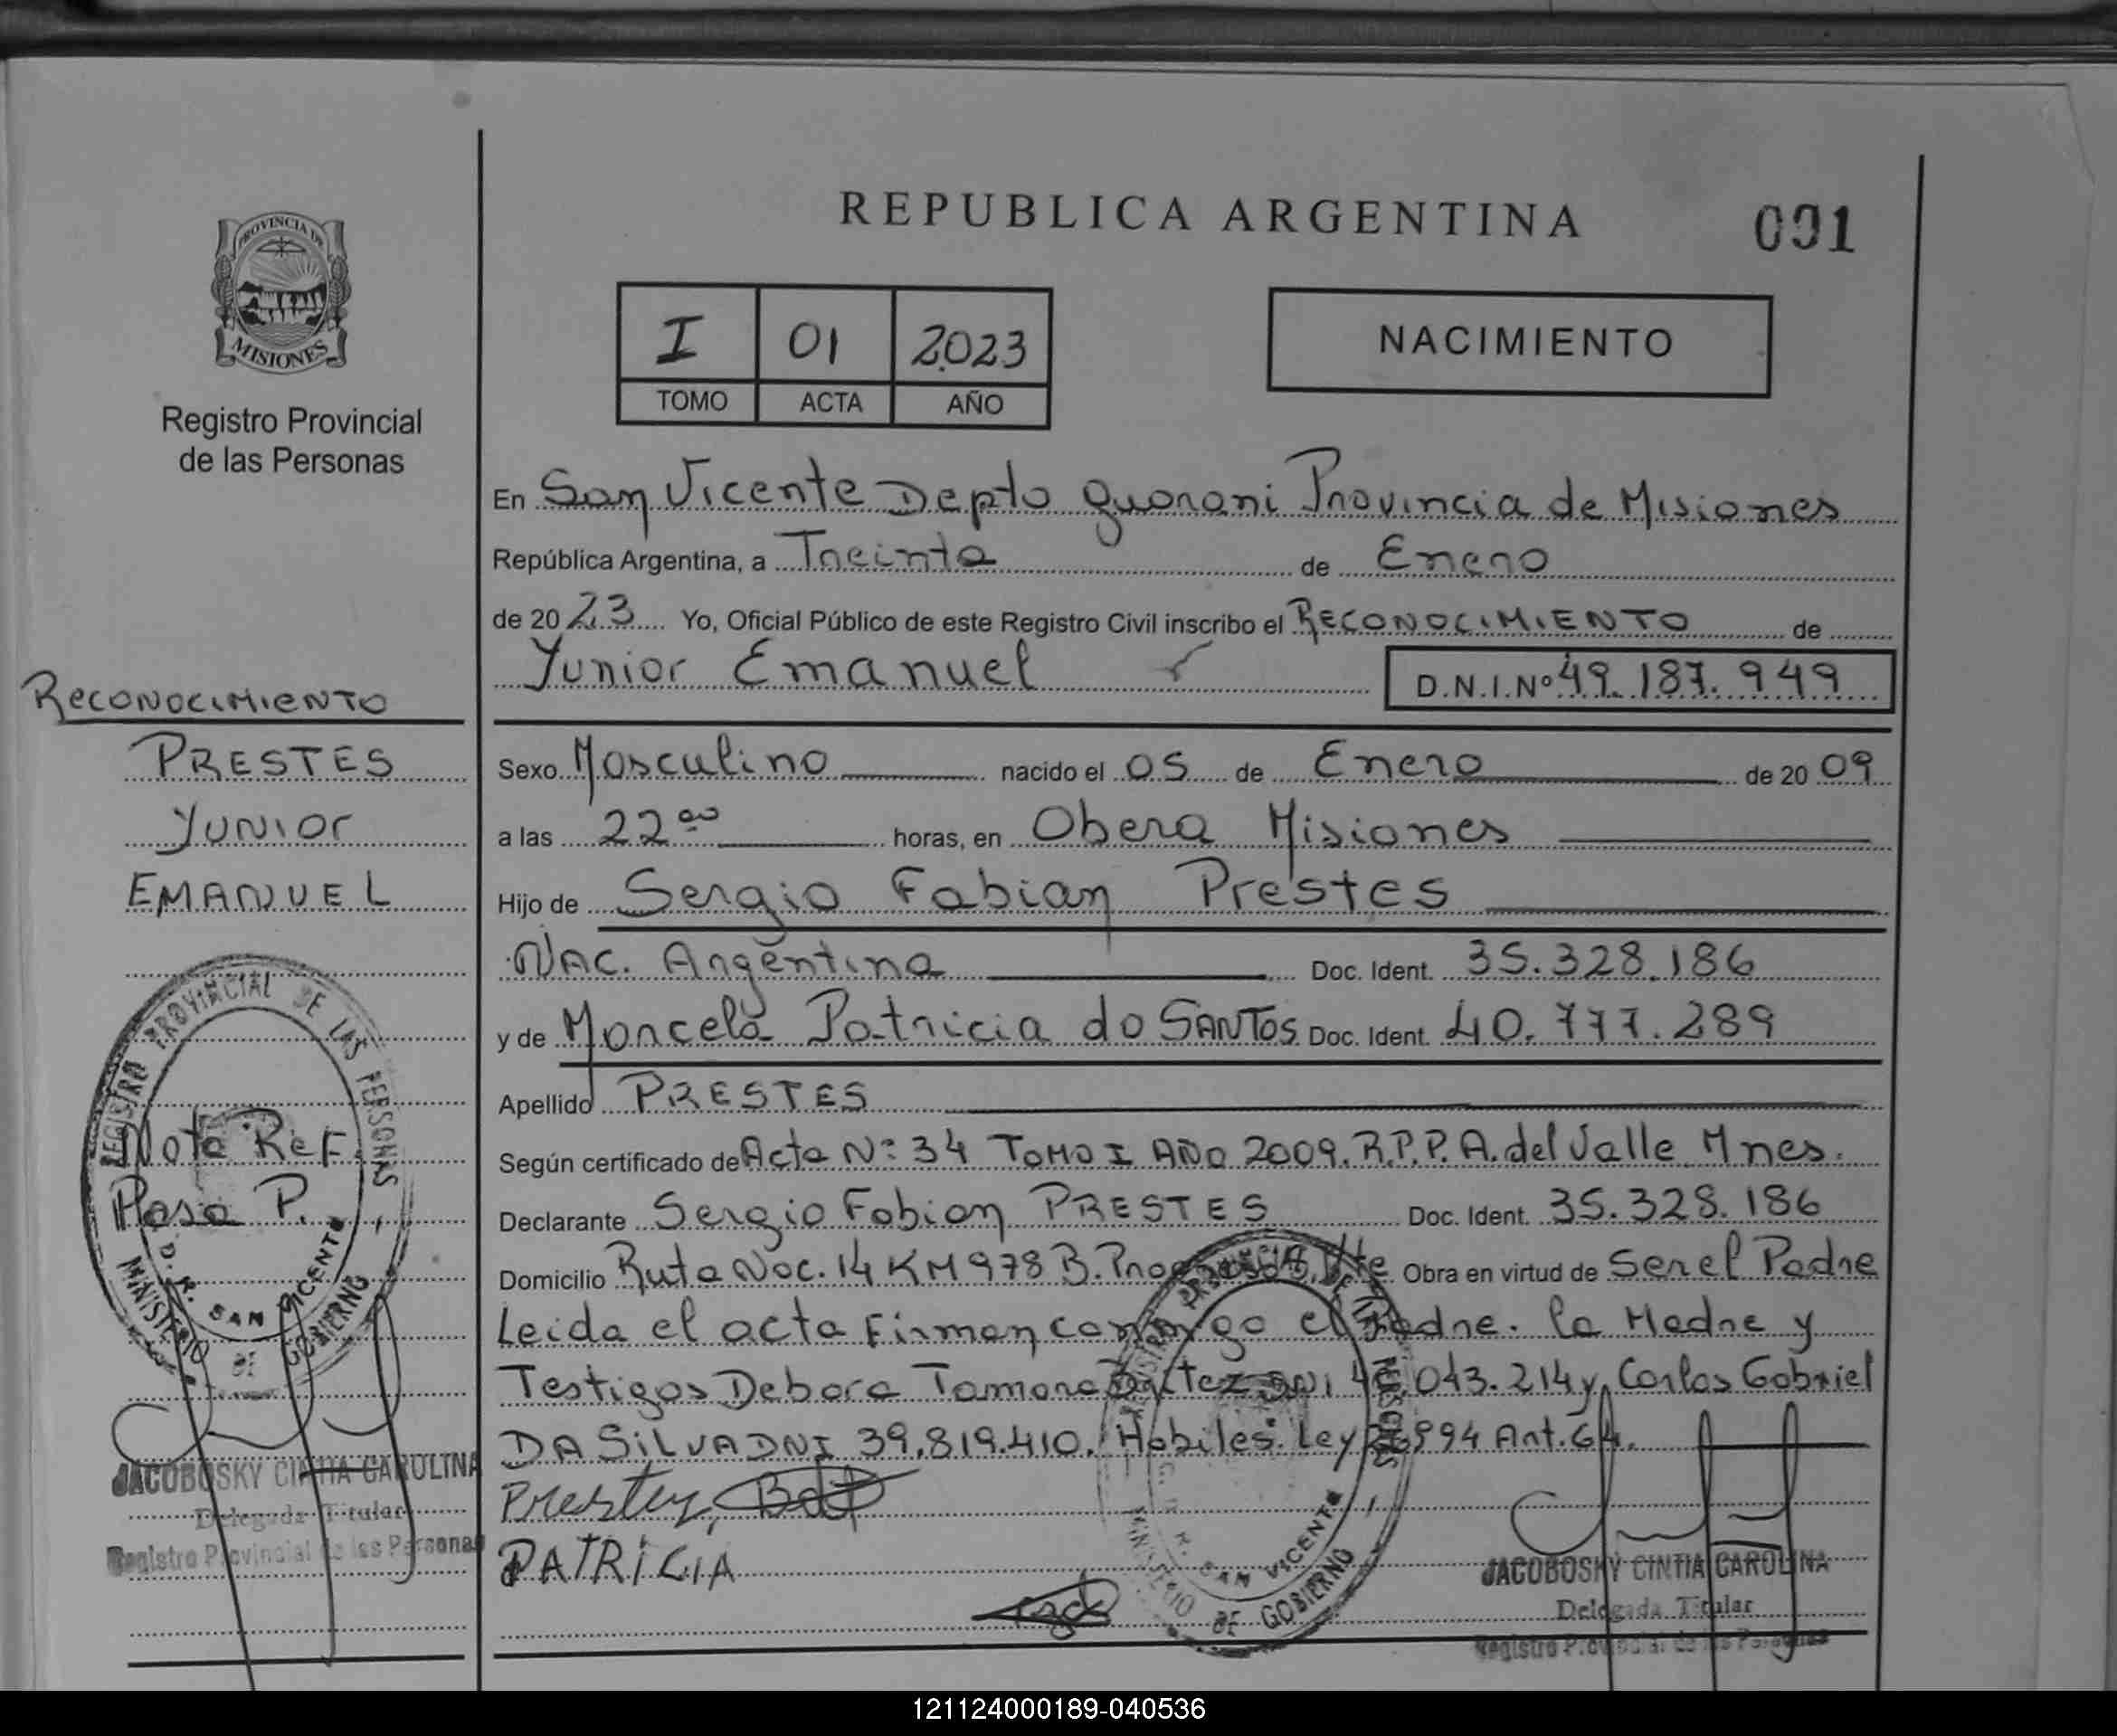 REPUBLICA ARGENTINA
001
PROVINCIA DE
MISIONES
Registro Provincial
de las Personas
I 01 2023
TOMO ACTA AÑO
NACIMIENTO
En San Vicente Depto Guarani Provincia de Misiones
República Argentina, a Treinta de Enero
de 2023 Yo, Oficial Público de este Registro Civil inscribo el RECONOCIMIENTO de
Yunior Emanuel D.N.I.Nº 49.187.949
RECONOCIMIENTO
PRESTES
YUNIOR
EMANUEL
Sexo Masculino nacido el 05 de Enero de 2009
a las 22 00 horas, en Obera Misiones
Hijo de Sergio Fabian Prestes
Nac. Argentina Doc. Ident. 35.328.186
y de Marcela Patricia do SANTOS Doc. Ident. 40.777.289
Apellido PRESTES
Según certificado de Acta Nº 34 TOMO I AÑO 2009. R.P.P. A. del Valle Mnes.
Declarante Sergio Fabian PRESTES Doc. Ident. 35.328.186
Domicilio Ruta Nac. 14 KM 978 B. Obra en virtud de Ser el Padre
Leida el acta Firman conmigo el Padre. la Madre y
Testigos Debora Tamara DNI 043.214 y Carlos Gabriel
DA SILVA DNI 39.819.410. Habiles. Ley 26994 Art. 64.
Prestes
PATRICIA
Nota Ref.
Pasa P.
REGISTRO PROVINCIAL DE LAS PERSONAS
SAN VICENTE
MINISTERIO DE GOBIERNO
JACOBOSKY CINTIA CAROLINA
Delegada Titular
Registro Provincial de las Personas
REGISTRO PROVINCIAL DE LAS PERSONAS
SAN VICENTE
MINISTERIO DE GOBIERNO
JACOBOSKY CINTIA CAROLINA
Delegada Titular
Registro Provincial de las Personas
121124000189-040536